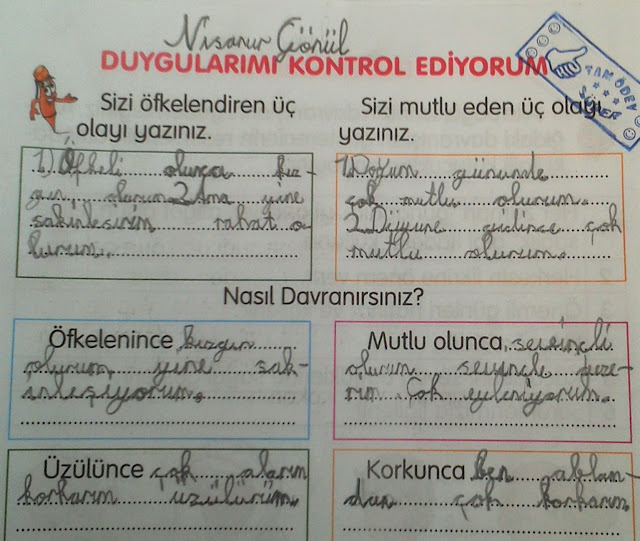 Nisanur Gönül
DUYGULARIMI KONTROL EDİYORUM
TAM ÖDEV
SÜPER
Sizi öfkelendiren üç
olayı yazınız.
1) Öfkeli olunca kız-
gın olurum 2 Ama yine
sakinleşirim rahat o-
lurum.
Sizi mutlu eden üç olayı
yazınız.
1. Doğum günümde
çok mutlu olurum.
2. Düğüne gidince çok
mutlu olurum.
Nasıl Davranırsınız?
Öfkelenince kızgın
olurum yine sak-
inleşiyorum.
Mutlu olunca sevinçli
olurum sevinçle
Çok eyleniyorum.
Üzülünce çok alarım
korkarım üzülürüm.
Korkunca ben ablam-
dan çok korkarım